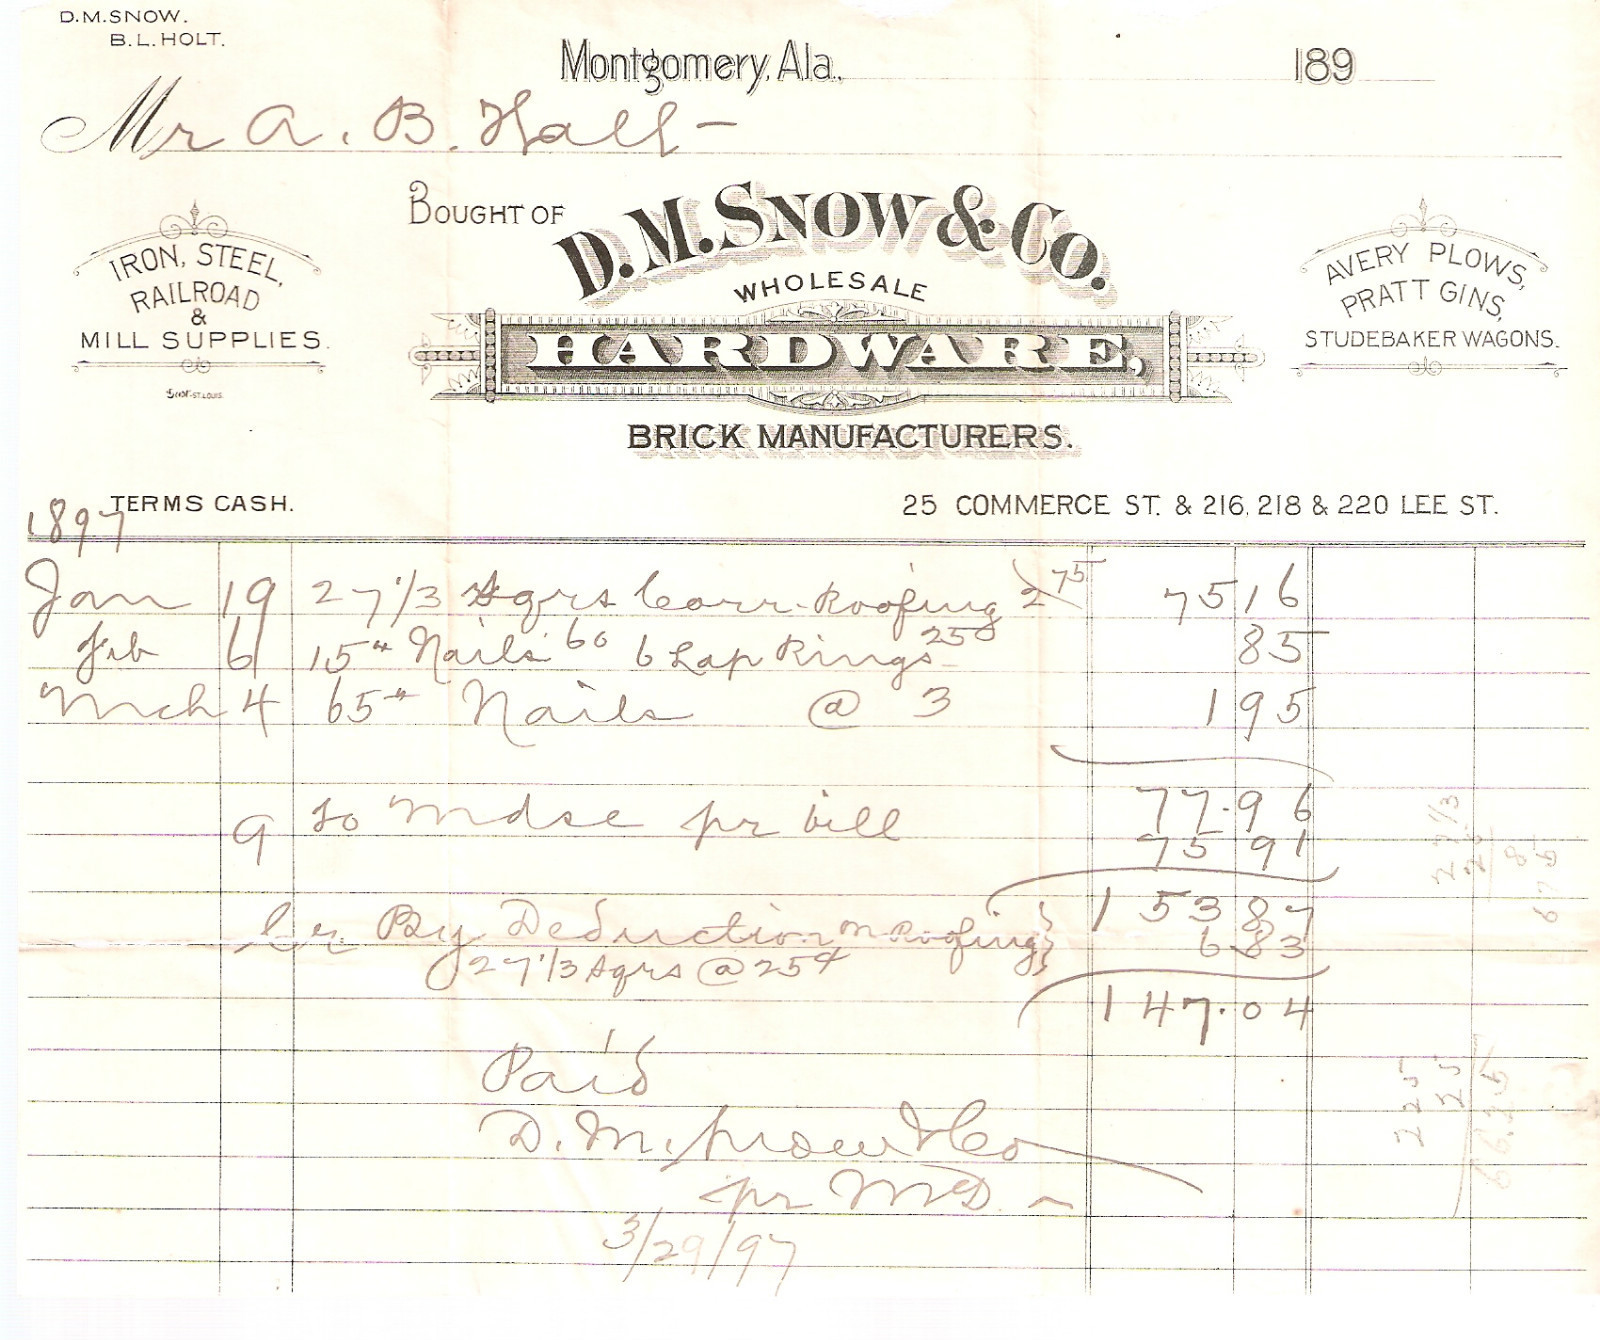 D.M. SNOW.
B.L. HOLT.
Montgomery, Ala., 189
Mr A. B. Hall -
BOUGHT OF D.M. SNOW & CO.
WHOLESALE
HARDWARE,
BRICK MANUFACTURERS.
IRON, STEEL,
RAILROAD
&
MILL SUPPLIES.
AVERY PLOWS,
PRATT GINS,
STUDEBAKER WAGONS.
TERMS CASH.
25 COMMERCE ST. & 216, 218 & 220 LEE ST.
1897
Jan 19 27 1/3 Sqrs Corr. Roofing 2 75 75 16
Feb 6 15# Nails 60 6 Lap Rings 25 85
Mch 4 65# Nails @ 3 1 95
77.96
9 To Mdse pr bill 75 91
153 87
Cr By Deduction on Roofing } 6 83
27 1/3 Sqrs @ 25¢
147.04
Paid
D. M. Snow & Co
pr McD
3/29/97
27 1/3
25
8
675
225
25